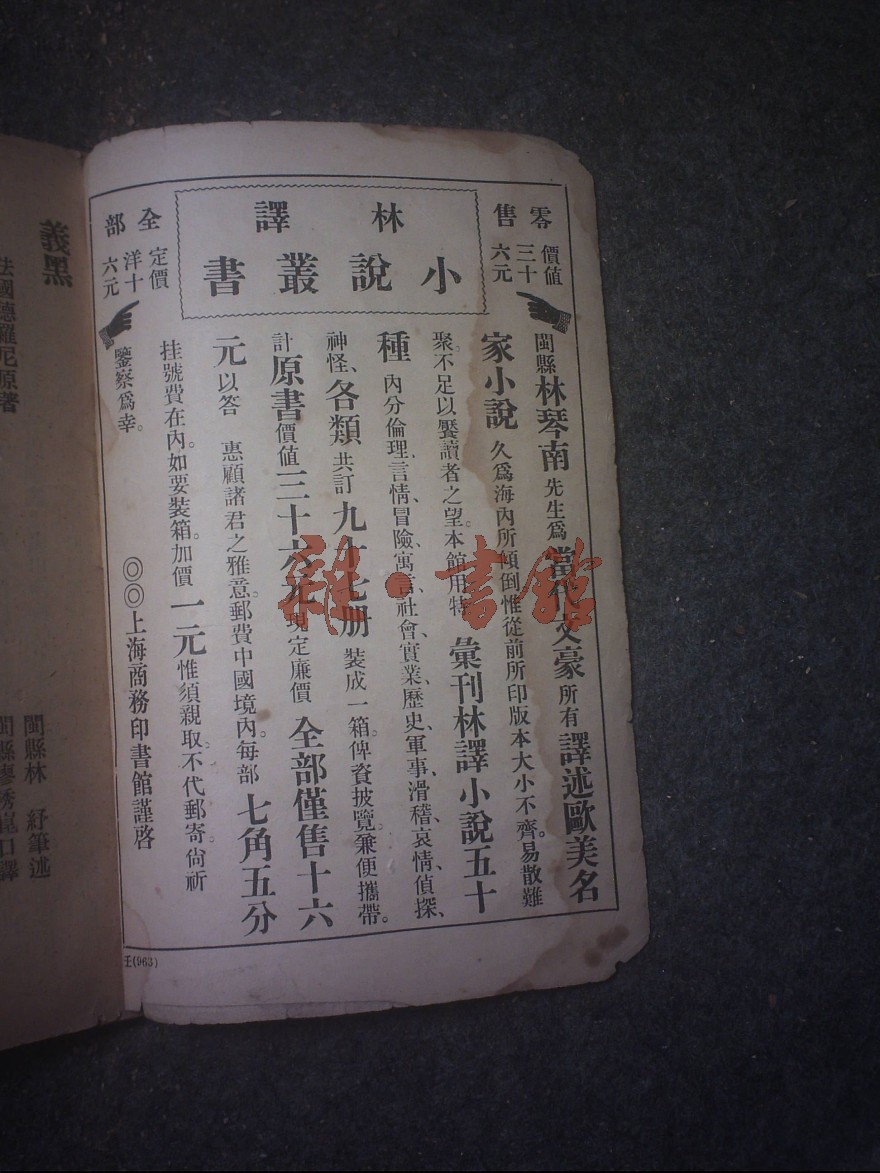 林譯
小說叢書
零售
價值
三十
六元
全部
定價
洋十
六元
閩縣林琴南先生爲當代文豪所有譯述歐美名
家小說久爲海內所傾倒惟從前所印版本大小不齊。易散難
聚。不足以饜讀者之望。本館用特彙刊林譯小說五十
種內分倫理、言情、冒險、寓言、社會、實業、歷史、軍事、滑稽、哀情、偵探、
神怪、各類共訂九十七册裝成一箱。俾資披覽。兼便攜帶。
計原書價値三十六元現定廉價全部僅售十六
元以答 惠顧諸君之雅意。郵費中國境內。每部七角五分
挂號費在內。如要裝箱加價一二元惟須親取。不代郵寄。尙祈
鑒察爲幸。
◎◎上海商務印書館謹啓
王(963)
義黑
法國德羅尼原著
閩縣林 紓筆述
閩縣廖琇崑口譯
雜·書館